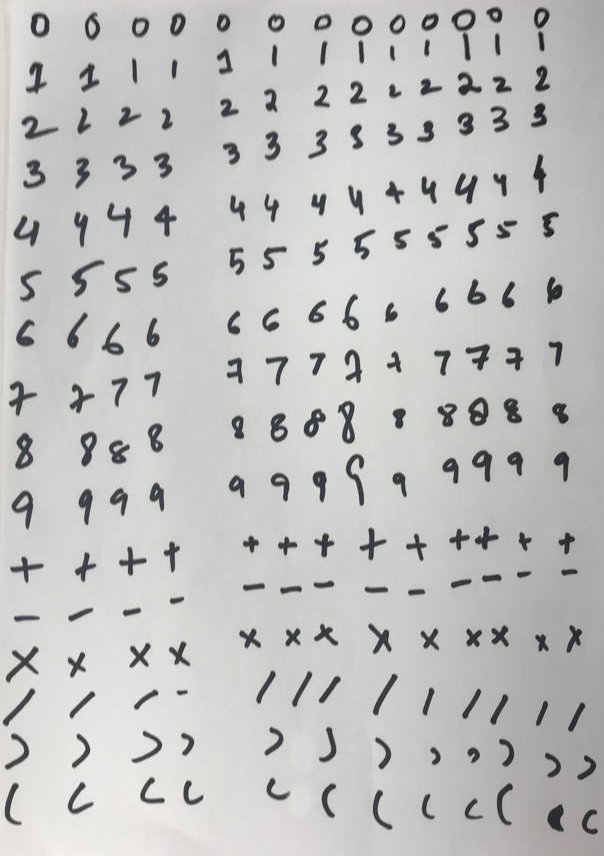 0 0 0 0 0 0 0 0 0 0 0 0 0
1 1 1 1 1 1 1 1 1 1 1 1 1
2 2 2 2 2 2 2 2 2 2 2 2 2
3 3 3 3 3 3 3 3 3 3 3 3 3
4 4 4 4 4 4 4 4 4 4 4 4 4
5 5 5 5 5 5 5 5 5 5 5 5 5
6 6 6 6 6 6 6 6 6 6 6 6 6
7 7 7 7 7 7 7 7 7 7 7 7 7
8 8 8 8 8 8 8 8 8 8 8 8 8
9 9 9 9 9 9 9 9 9 9 9 9 9
+ + + + + + + + + + + + +
- - - - - - - - - - - - -
x x x x x x x x x x x x x
/ / / - / / / / / / / / /
) ) ) ) ) ) ) ) ) ) ) ) )
( ( ( ( ( ( ( ( ( ( ( ( (